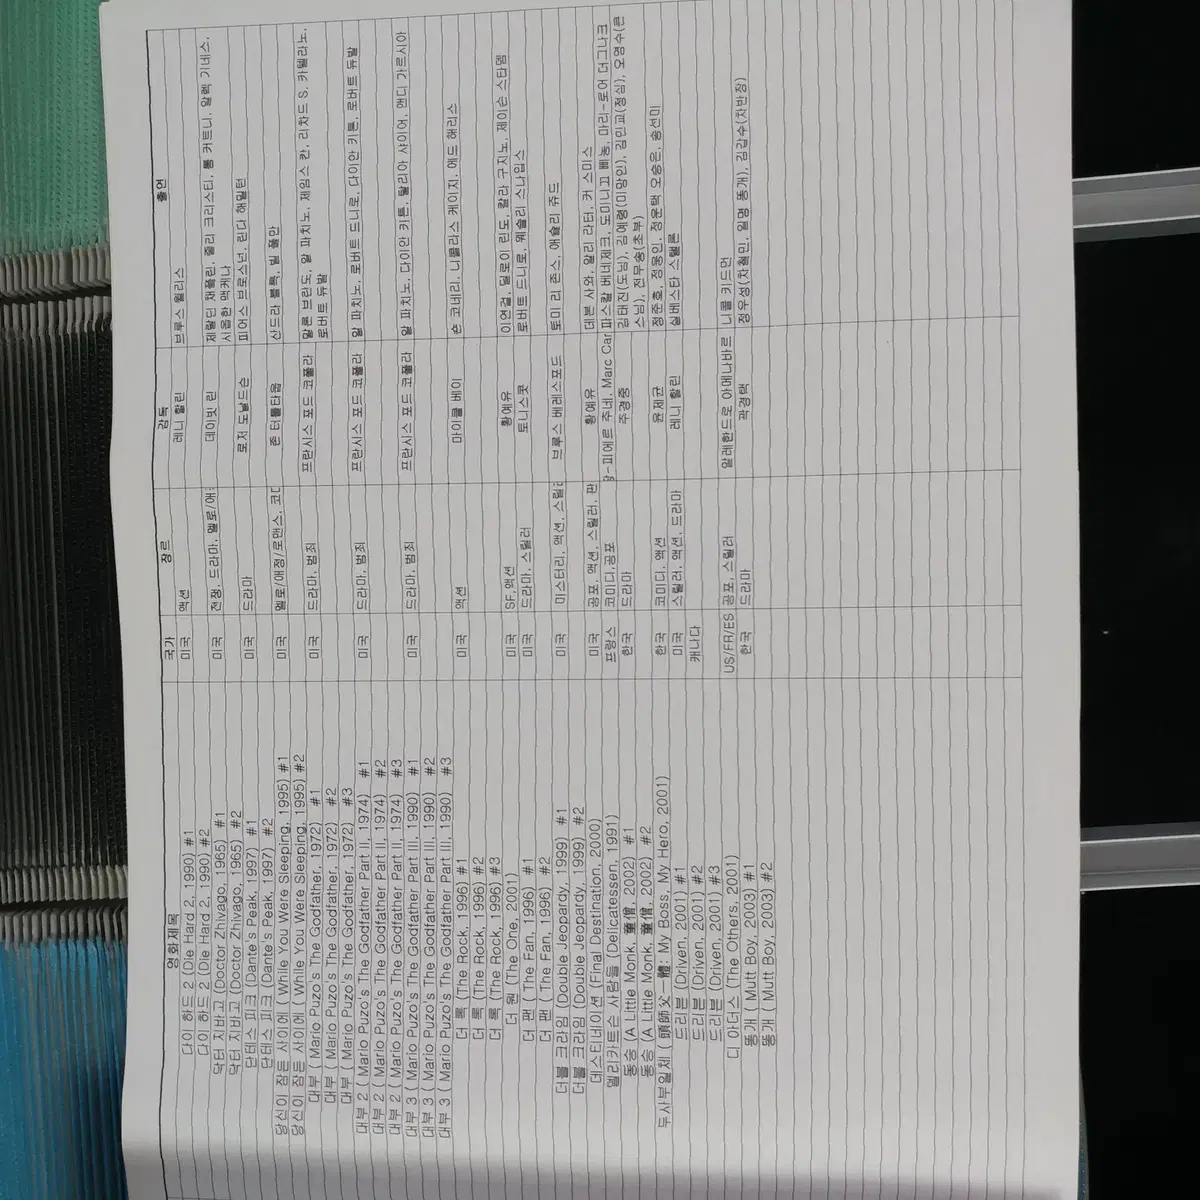 영화제목 국가 장르 감독 출연
다이 하드 2 (Die Hard 2, 1990) #1 미국 액션 레니 할린 브루스 윌리스
다이 하드 2 (Die Hard 2, 1990) #2
닥터 지바고 (Doctor Zhivago, 1965) #1 미국 전쟁, 드라마, 멜로/애 데이빗 린 제랄딘 채플린, 줄리 크리스티, 톰 커트니, 알렉 기네스,
시옵한 맥케나
닥터 지바고 (Doctor Zhivago, 1965) #2
단테스 피크 (Dante's Peak, 1997) #1 미국 드라마 로저 도날드슨 피어스 브로스넌, 린다 해밀턴
단테스 피크 (Dante's Peak, 1997) #2
당신이 잠든 사이에 ( While You Were Sleeping, 1995) #1 미국 멜로/애정/로맨스, 코 존 터틀타웁 산드라 블록, 빌 풀만
당신이 잠든 사이에 ( While You Were Sleeping, 1995) #2
대부 ( Mario Puzo's The Godfather, 1972) #1 미국 드라마, 범죄 프란시스 포드 코폴라 말론 브란도, 알 파치노, 제임스 칸, 리차드 S. 카텔라노,
로버트 듀발
대부 ( Mario Puzo's The Godfather, 1972) #2
대부 ( Mario Puzo's The Godfather, 1972) #3
대부 2 ( Mario Puzo's The Godfather Part II, 1974) #1 미국 드라마, 범죄 프란시스 포드 코폴라 알 파치노, 로버트 드니로, 다이안 키튼, 로버트 듀발
대부 2 ( Mario Puzo's The Godfather Part II, 1974) #2
대부 2 ( Mario Puzo's The Godfather Part II, 1974) #3
대부 3 ( Mario Puzo's The Godfather Part III, 1990) #1 미국 드라마, 범죄 프란시스 포드 코폴라 알 파치노, 다이안 키튼, 탈리아 샤이어, 앤디 가르시아
대부 3 ( Mario Puzo's The Godfather Part III, 1990) #2
대부 3 ( Mario Puzo's The Godfather Part III, 1990) #3
더 록 (The Rock, 1996) #1 미국 액션 마이클 베이 숀 코네리, 니콜라스 케이지, 에드 해리스
더 록 (The Rock, 1996) #2
더 록 (The Rock, 1996) #3
더 원 (The One, 2001) 미국 SF,액션 황예유 이연걸, 델로이 린도, 칼라 구지노, 제이슨 스타뎀
더 팬 ( The Fan, 1996) #1 미국 드라마, 스릴러 토니스콧 로버트 드니로, 웨슬리 스나입스
더 팬 ( The Fan, 1996) #2
더블 크라임 (Double Jeopardy, 1999) #1 미국 미스터리, 액션, 스릴 브루스 베레스포드 토미 리 존스, 애슐리 쥬드
더블 크라임 (Double Jeopardy, 1999) #2
데스티네이션 (Final Destination, 2000) 미국 공포, 액션, 스릴러, 판 황예유 데본 사와, 알리 라터, 커 스미스
델리카트슨 사람들 (Delicatessen, 1991) 프랑스 코미디,공포 피에르 주네, Marc Car 파스칼 베네제크, 도미니끄 삐농, 마리-로어 더그나크
동승 (A Little Monk, 童僧, 2002) #1 한국 드라마 주경중 김태진(도념), 김예령(미망인), 김민교(정심), 오영수(큰
스님), 전무송(초부)
동승 (A Little Monk, 童僧, 2002) #2
두사부일체 ( 頭師父一體: My Boss, My Hero, 2001) 한국 코미디, 액션 윤제균 정준호, 정웅인, 정운택 오승은, 송선미
드리븐 (Driven, 2001) #1 미국 스릴러, 액션, 드라마 레니 할린 실베스타 스탤론
드리븐 (Driven, 2001) #2 캐나다
드리븐 (Driven, 2001) #3
디 아더스 (The Others, 2001) US/FR/ES 공포, 스릴러 알레한드로 아메나바르 니콜 키드만
똥개 ( Mutt Boy, 2003) #1 한국 드라마 곽경택 정우성(차철민, 일명 똥개), 김갑수(차반장)
똥개 ( Mutt Boy, 2003) #2